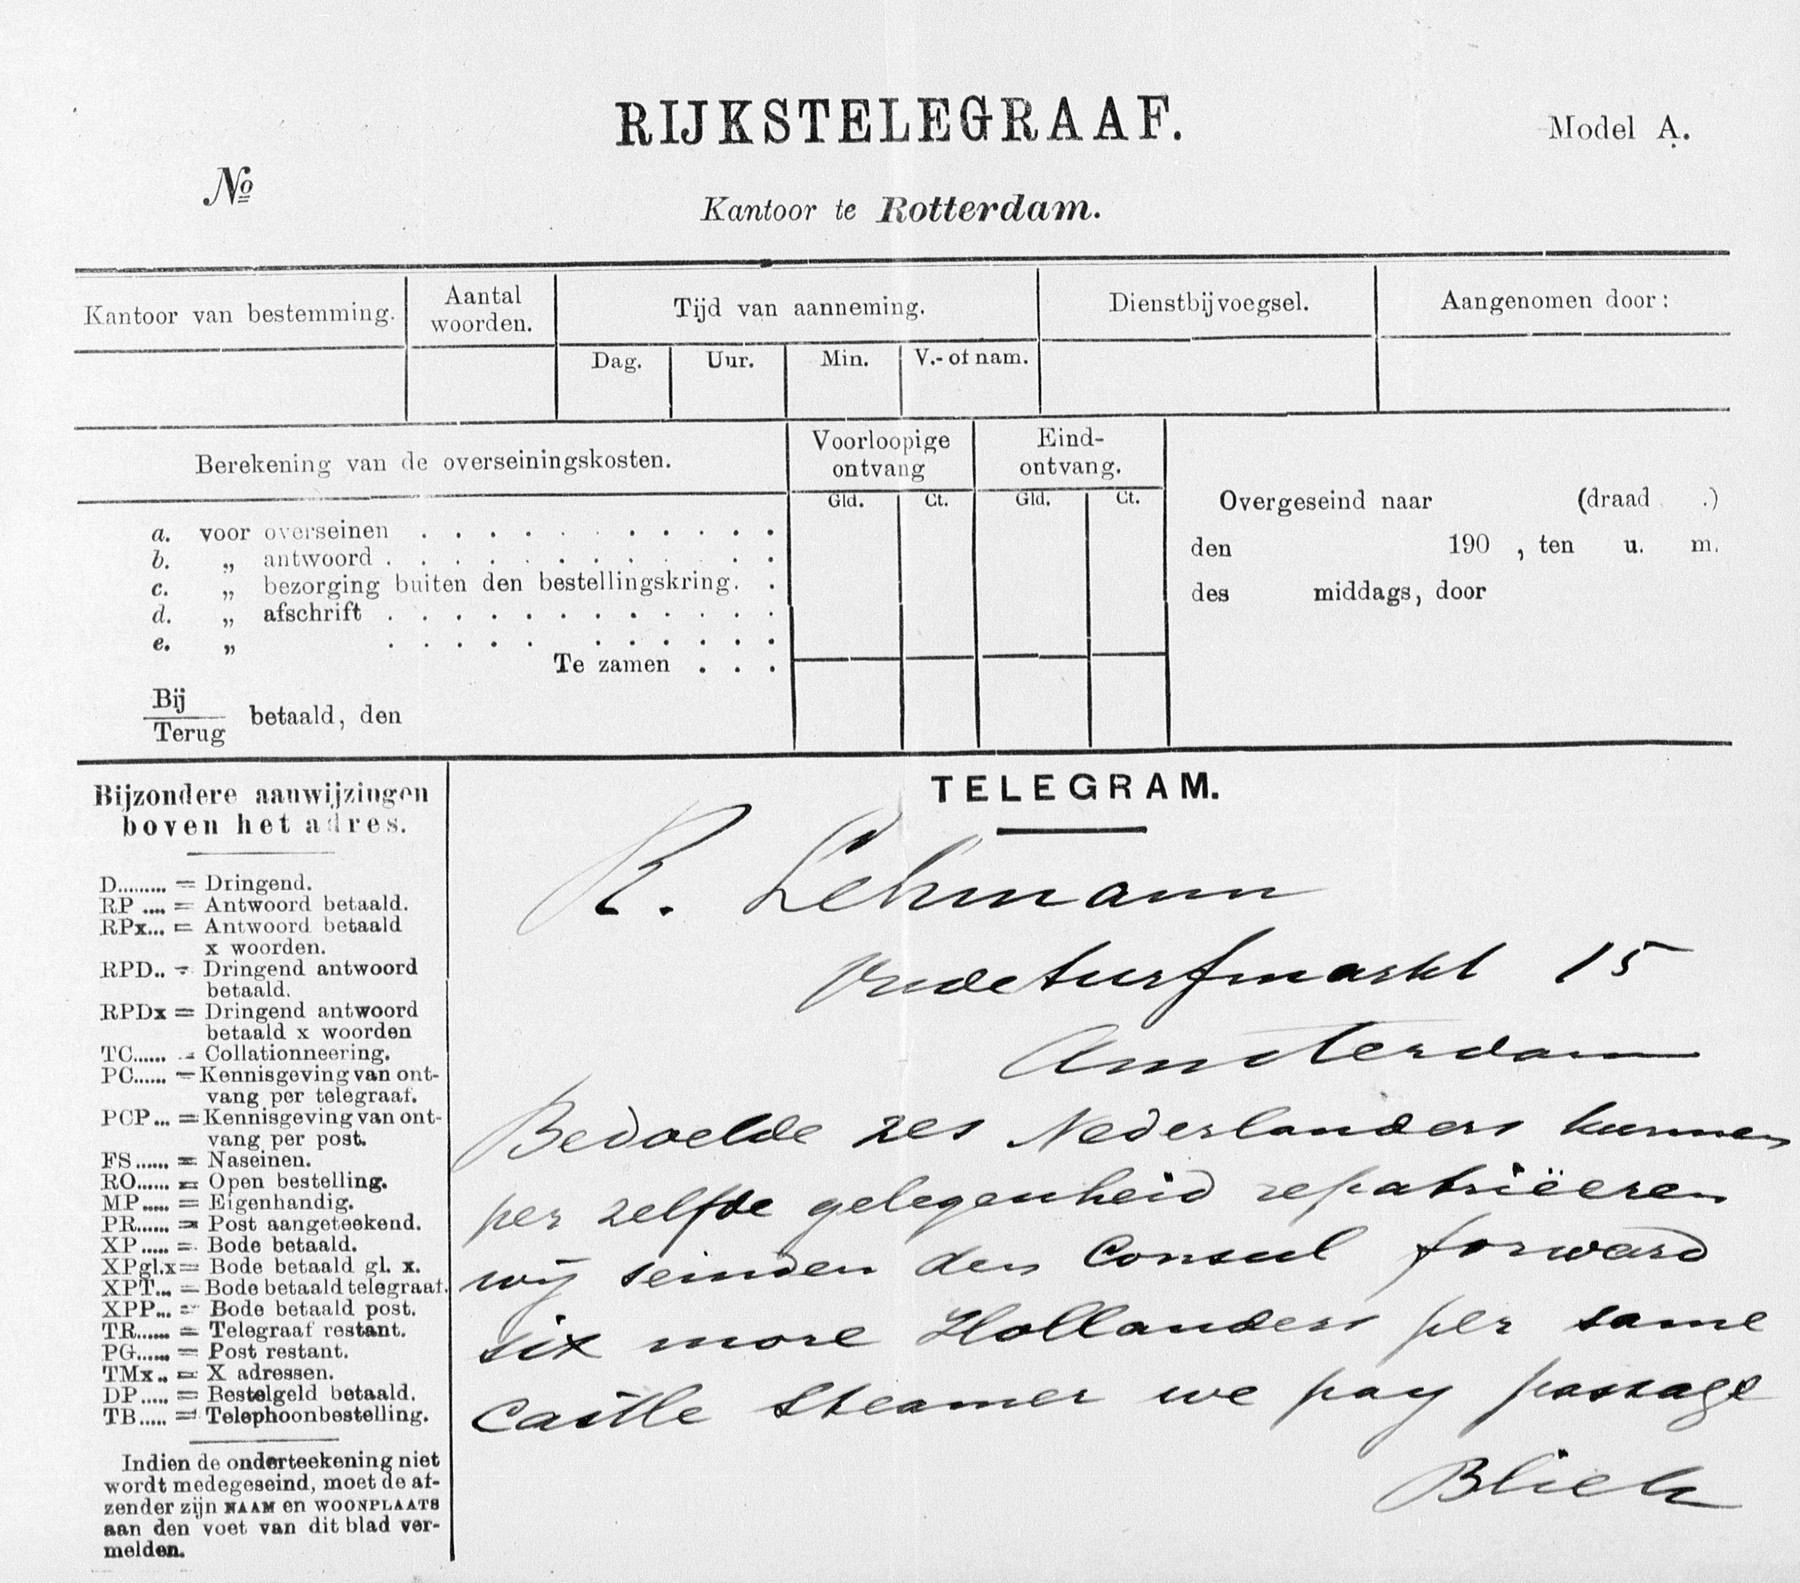 RIJKSTELEGRAAF.
Model A.
No
Kantoor te Rotterdam.
Kantoor van bestemming.
Aantal woorden.
Tijd van aanneming.
Dienstbijvoegsel.
Aangenomen door:
Dag. Uur. Min. V.- of nam.
Berekening van de overseiningskosten.
Voorloopige ontvang
Eind-ontvang.
Gld. Ct. Gld. Ct.
a. voor overseinen . . . . . . . . . . .
b. „ antwoord . . . . . . . . . . . .
c. „ bezorging buiten den bestellingskring. .
d. „ afschrift . . . . . . . . . . . .
e. „ . . . . . . . . . . . .
Te zamen . . .
Bij
Terug
betaald, den
Overgeseind naar (draad .)
den 190 , ten u. m.
des middags, door
Bijzondere aanwijzingen
boven het adres.
D......... = Dringend.
RP .... = Antwoord betaald.
RPx... = Antwoord betaald
x woorden.
RPD.. = Dringend antwoord
betaald.
RPDx = Dringend antwoord
betaald x woorden
TC...... = Collationneering.
PC...... = Kennisgeving van ont-
vang per telegraaf.
PCP ... = Kennisgeving van ont-
vang per post.
FS ...... = Naseinen.
RO...... = Open bestelling.
MP..... = Eigenhandig.
PR...... = Post aangeteekend.
XP ..... = Bode betaald.
XPgl.x= Bode betaald gl. x.
XPT... = Bode betaald telegraaf.
XPP... = Bode betaald post.
TR...... = Telegraaf restant.
PG...... = Post restant.
TMx .. = X adressen.
DP ..... = Bestelgeld betaald.
TB..... = Telephoonbestelling.
Indien de onderteekening niet
wordt medegeseind, moet de af-
zender zijn NAAM en WOONPLAATS
aan den voet van dit blad ver-
melden.
TELEGRAM.
R. Lehmann
Oudeturfmarkt 15
Amsterdam
Bedoelde zes Nederlanders kunnen
per zelfde gelegenheid repatriëeren
wij seinden den Consul forward
six more Hollanders per same
Castle Steamer we pay passage
Bliek